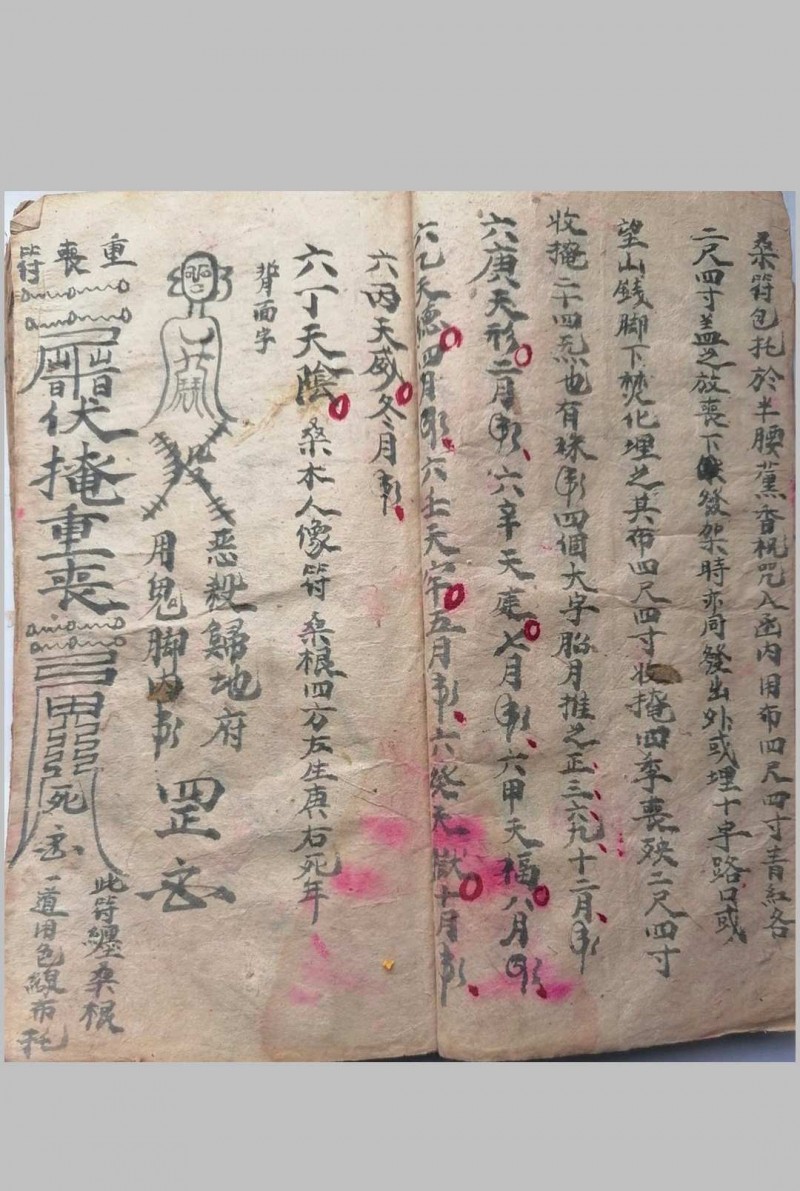 桑符包托於半腰薰香机咒入函内用布四尺四寸青紅各
二尺四寸盖之放喪下發架時亦同發出外或埋十字路口或
望山錢脚下焚化埋之其布四尺四寸收掩四季喪殃二尺四寸
收掩二十四炁也有殊四個大字胎月推之正三六九十二月
六庚天形二月六辛天庭七月六甲天福八月
六乙天德四月六壬天牢五月六癸天獄十月
六丙天威冬月
六丁天陰桑木人像符桑根四方左生庚右死年
背面字
惡殺歸地府
用鬼脚内
罡
重喪符
伏掩重喪
死
此符纏桑根
一道用色線布托